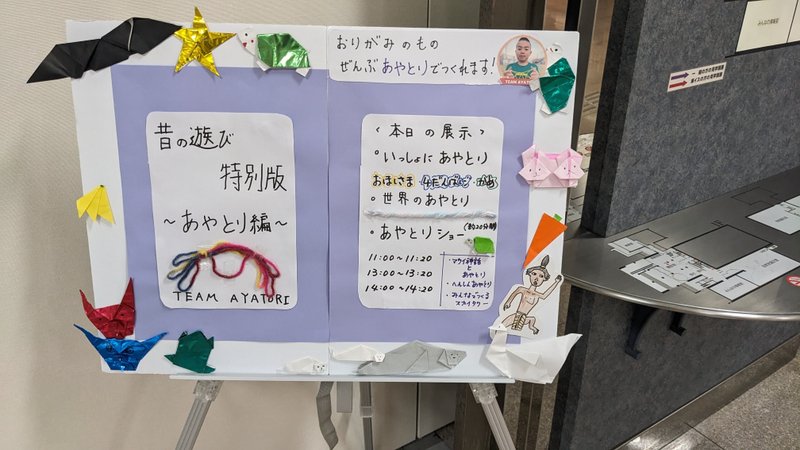 昔の遊び
特別版
～あやとり編～
TEAM AYATORI
おりがみのもの
ぜんぶあやとりでつくれます!
TEAM AYATORI
〈本日の展示〉
・いっしょに あやとり
おほしさま 4だんばしご
・世界のあやとり
・あやとりショー(約20分間)
11:00～11:20
13:00～13:20
14:00～14:20
・マウイ神話
と
あやとり
・へんしんあやとり
・みんなでつくる
スカイタワー